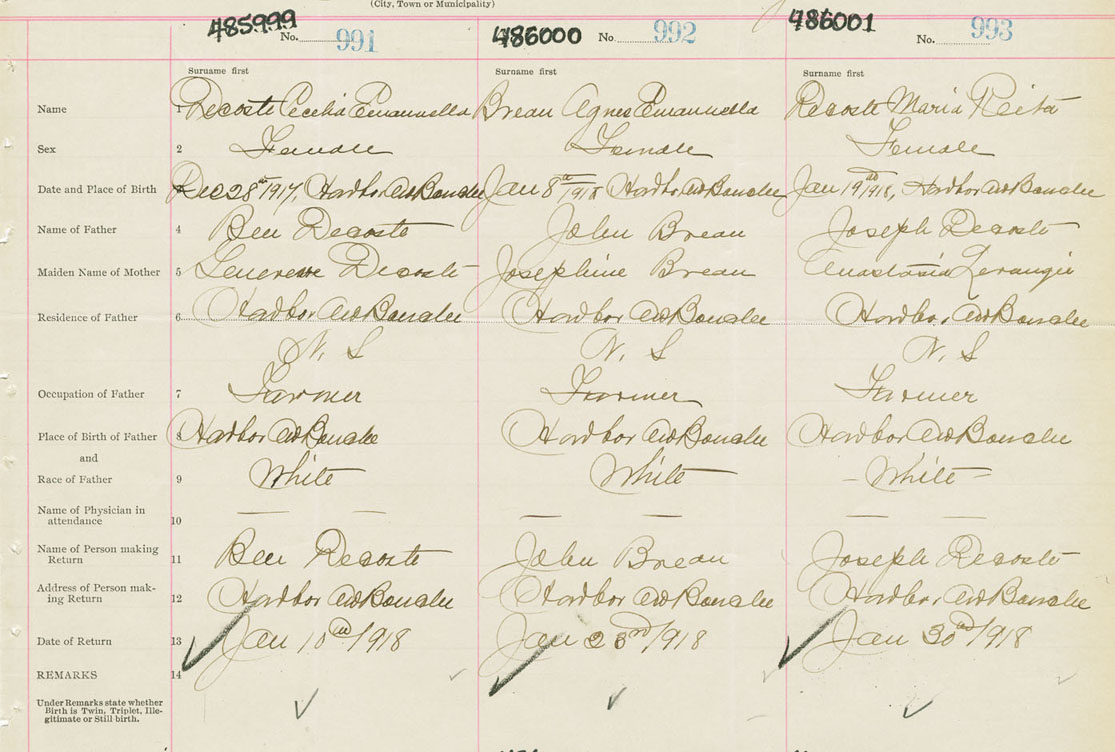 (City, Town or Municipality)
485999 No. 991 486000 No. 992 486001 No. 993
Surname first Surname first Surname first
Name 1 Decoste Cecelia Emannuella Breau Agnes Emannuella Decoste Maria Reita
Sex 2 Female Female Female
Date and Place of Birth Dec 28th 1917, Harbor Au Bouche Jan 8th 1918 Harbor Au Bouche Jan 19th 1918, Harbor Au Bouche
Name of Father 4 Ben Decoste John Breau Joseph Decoste
Maiden Name of Mother 5 Decoste Josephine Breau Anastasia
Residence of Father 6 Harbor Au Bouche Harbor Au Bouche Harbor Au Bouche
N. S N. S N. S
Occupation of Father 7 Farmer Farmer Farmer
Place of Birth of Father 8 Harbor Au Bouche Harbor Au Bouche Harbor Au Bouche
and
Race of Father 9 White White White
Name of Physician in
attendance 10 — — — — — —
Name of Person making
Return 11 Ben Decoste John Breau Joseph Decoste
Address of Person mak-
ing Return 12 Harbor Au Bouche Harbor Au Bouche Harbor Au Bouche
Date of Return 13 Jan 10th/1918 Jan 23rd/1918 Jan 30th/1918
REMARKS 14
Under Remarks state whether
Birth is Twin, Triplet, Ille-
gitimate or Still birth.